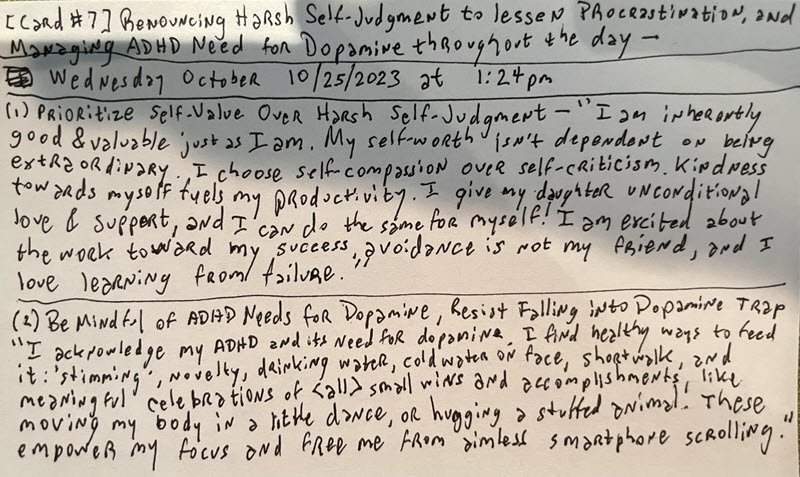 [Card #7] Renouncing Harsh Self-Judgment to lessen Procrastination, and
Managing ADHD Need for Dopamine throughout the day —
Wednesday October 10/25/2023 at 1:24pm
(1) Prioritize Self-Value Over Harsh Self-Judgment — "I am inherently
good & valuable just as I am. My self-worth isn't dependent on being
extraordinary. I choose self-compassion over self-criticism. Kindness
towards myself fuels my productivity. I give my daughter unconditional
love & support, and I can do the same for myself! I am excited about
the work toward my success, avoidance is not my friend, and I
love learning from failure."
(2) Be Mindful of ADHD Needs for Dopamine, Resist Falling into Dopamine Trap
"I acknowledge my ADHD and its need for dopamine. I find healthy ways to feed
it: 'stimming', novelty, drinking water, cold water on face, short walk, and
meaningful celebrations of <all> small wins and accomplishments, like
moving my body in a little dance, or hugging a stuffed animal. These
empower my focus and free me from aimless smartphone scrolling."